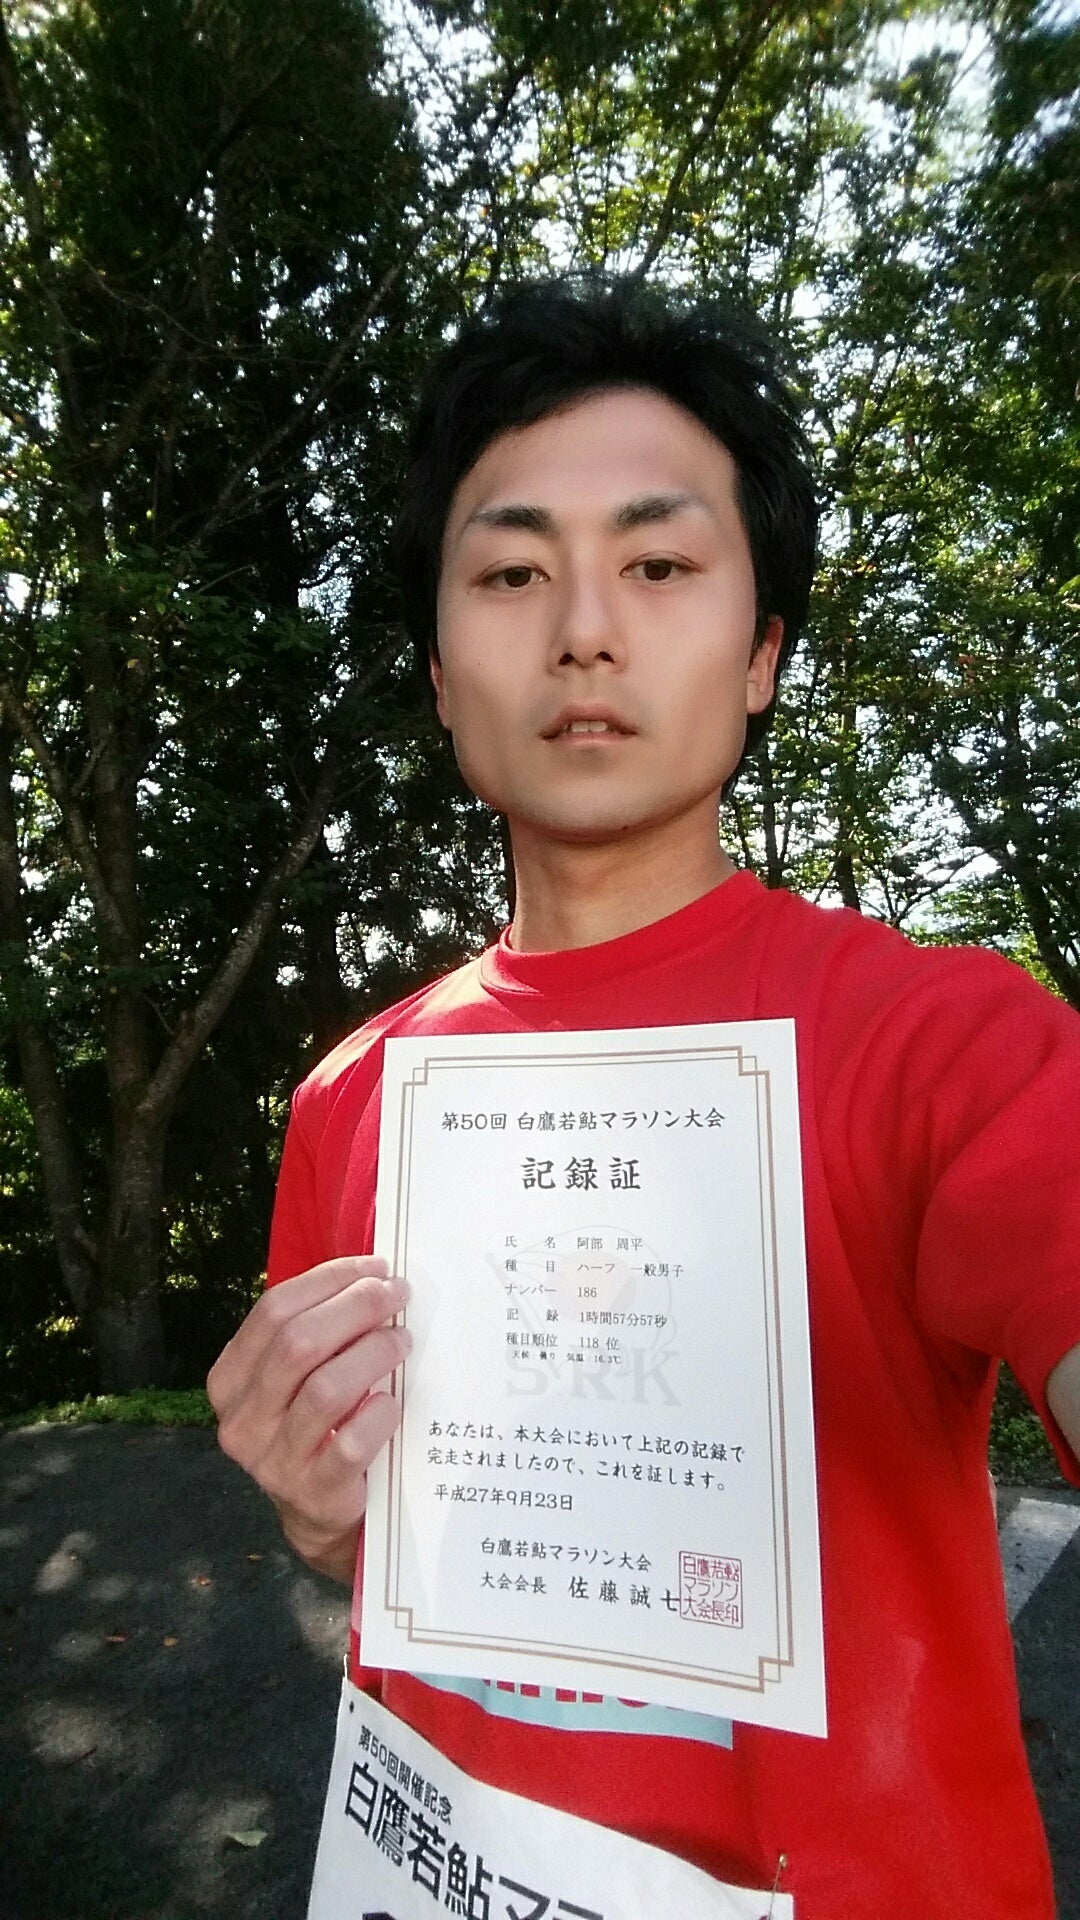 第50回 白鷹若鮎マラソン大会
記録証
氏 名 阿部 周平
種 目 ハーフ 一般男子
ナンバー 186
記 録 1時間57分57秒
種目順位 118 位
天候：曇り 気温：16.3℃
SRK
あなたは、本大会において上記の記録で
完走されましたので、これを証します。
平成27年9月23日
白鷹若鮎マラソン大会
大会会長 佐藤誠七
白鷹若鮎
マラソン
大会長印
第50回開催記念
白鷹若鮎マラ